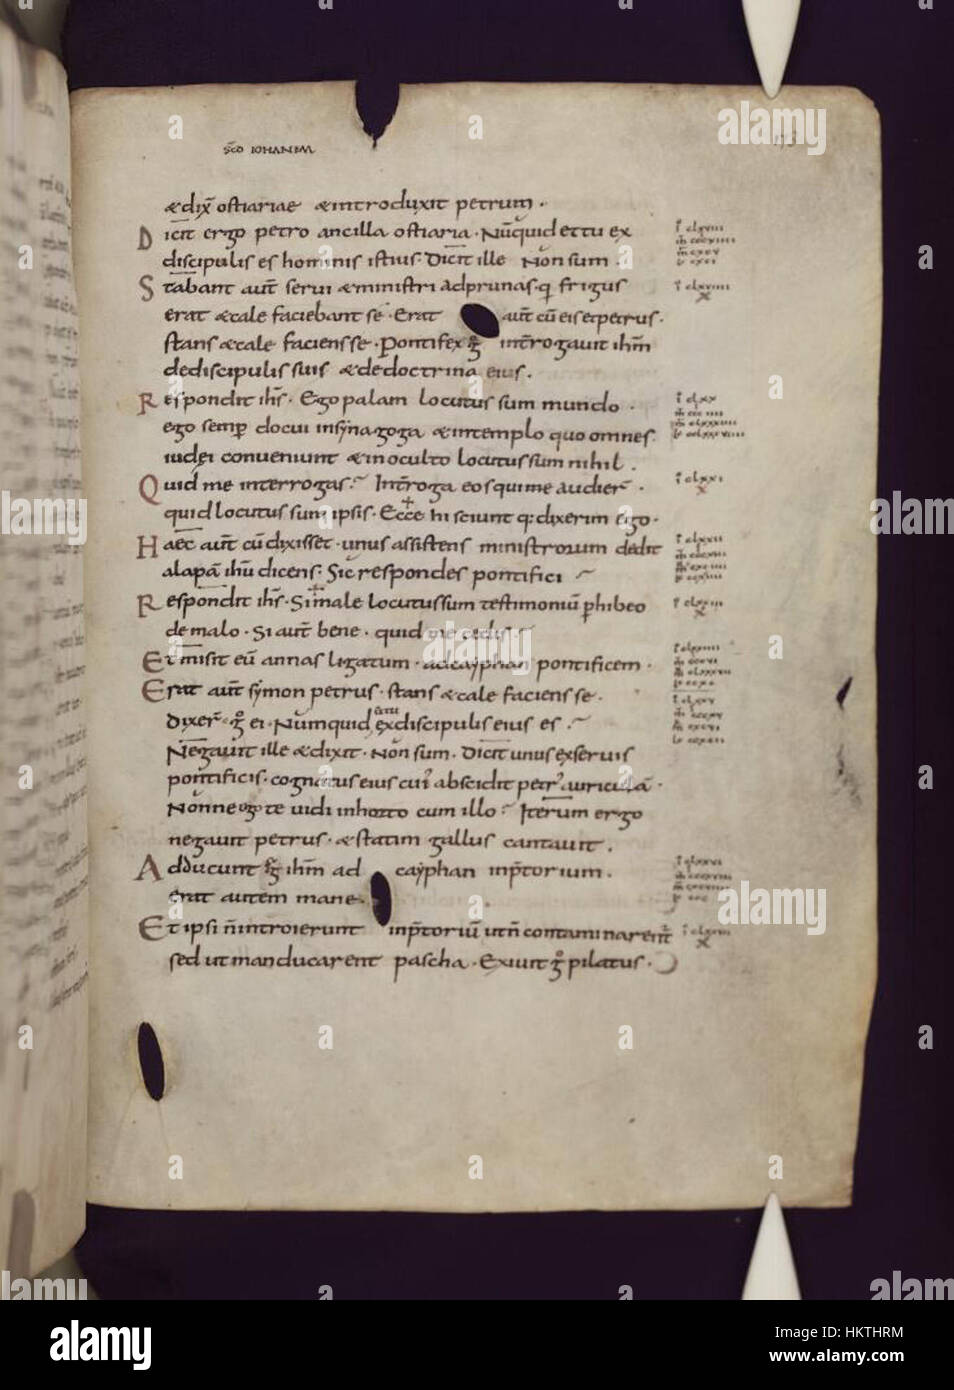 scd iohanem
&dix̄ ostiariae &introduxit petrum·
Dicit ergo petro ancilla ostiaria· Nūquid ettu ex
discipulis es hominis istius· Dicit ille Non sum
Stabant aut̄ serui &ministri adprunas· q̄ frigus
erat &cale faciebant se· Erat aut̄ cū eis et petrus·
stans &cale faciens se· Pontifex g̊ int̄rogauit ihm̄
dediscipulis suis &dedoctrina eius.
Respondit ihs̄· Ego palam locutus sum mundo·
ego semp̄ docui insynagoga &intemplo quo omnes
iudęi conveniunt &inoculto locutus sum nihil.
Quid me interrogas? Int̄roga eos qui me audier̄·
quid locutus sum ipsis· Ecce hi sciunt q: dixerim ego·
Haec aut̄ cū dixisset· unus assistens ministrorum dedit
alapā ihu dicens· Sic respondes pontifici
Respondit ihs̄· Si male locutus sum testimoniū phibeo
de malo· Si aut̄ bene· quid me cedis?
Et misit eū annas ligatum· adcayphan pontificem·
Erat aut̄ symon petrus· stans &cale faciens se.
Dixer̄ g̊ ei· Numquid &tu exdiscipulis eius es?
Negauit ille &dixit· Non sum. Dicit unus exseruis
pontificis· cognatus eius cui abscidit petr' auriculā·
Nonne ego te uidi inhorto cum illo? Iterum ergo
negauit petrus· &statim gallus cantauit.
Adducunt g̊ ihm̄ ad cayphan inp̄torium.
erat autem mane·
Et ipsi n̄ introierunt inp̄toriū utn̄ contaminarent̄
sed ut manducarent pascha· Exiuit g̊ pilatus·
alamy
Image ID: HKTHRM
www.alamy.com